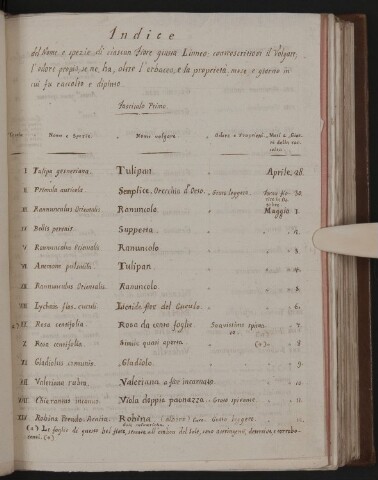 Indice
del Nome, e spezie di ciascun fiore giusta Linneo, conoscersi il Volgare,
l'odore proprio, se ne ha, oltre l'erbaceo, e la proprietà, mese, e giorno in
cui fu raccolto e dipinto.
Fascicolo Primo.
Nome e Spezie. Nome volgare. Odore e Proprietà. Mesi e Gior
I Tulipa gesneriana Tulipan Aprile 28.
II Primula auricula Semplice, Orecchia d'Orso. Odore leggero 30
III Ranunculus Orientalis Ranuncolo Maggio 1.
IV Bellis perennis 2.
V Ranunculus Orientalis Ranuncolo 3.
VI Tulipan 4.
VII Ranunculus Orientalis. Ranuncolo 5.
VIII Lychnis flos cuculi fior del Cucculo 6.
IX Rosa centifolia Rosa da cento foglie Suavissimo 7.
X Rosa centifolia Simile quasi aperta (a) 8
XI Gladiolus comunis Gladiolo 10.
XII Valeriana rubra. Valeriana a fior incarnato 10.
XIII Cheiranthus incanus Viola doppia paonazza Grato 11.
XIV Robinia Pseudo-Acacia Robina 12.
(a) Le foglie di questo bel fiore, all'ombra del Sole, sono astringenti, detersive, e corrobo-